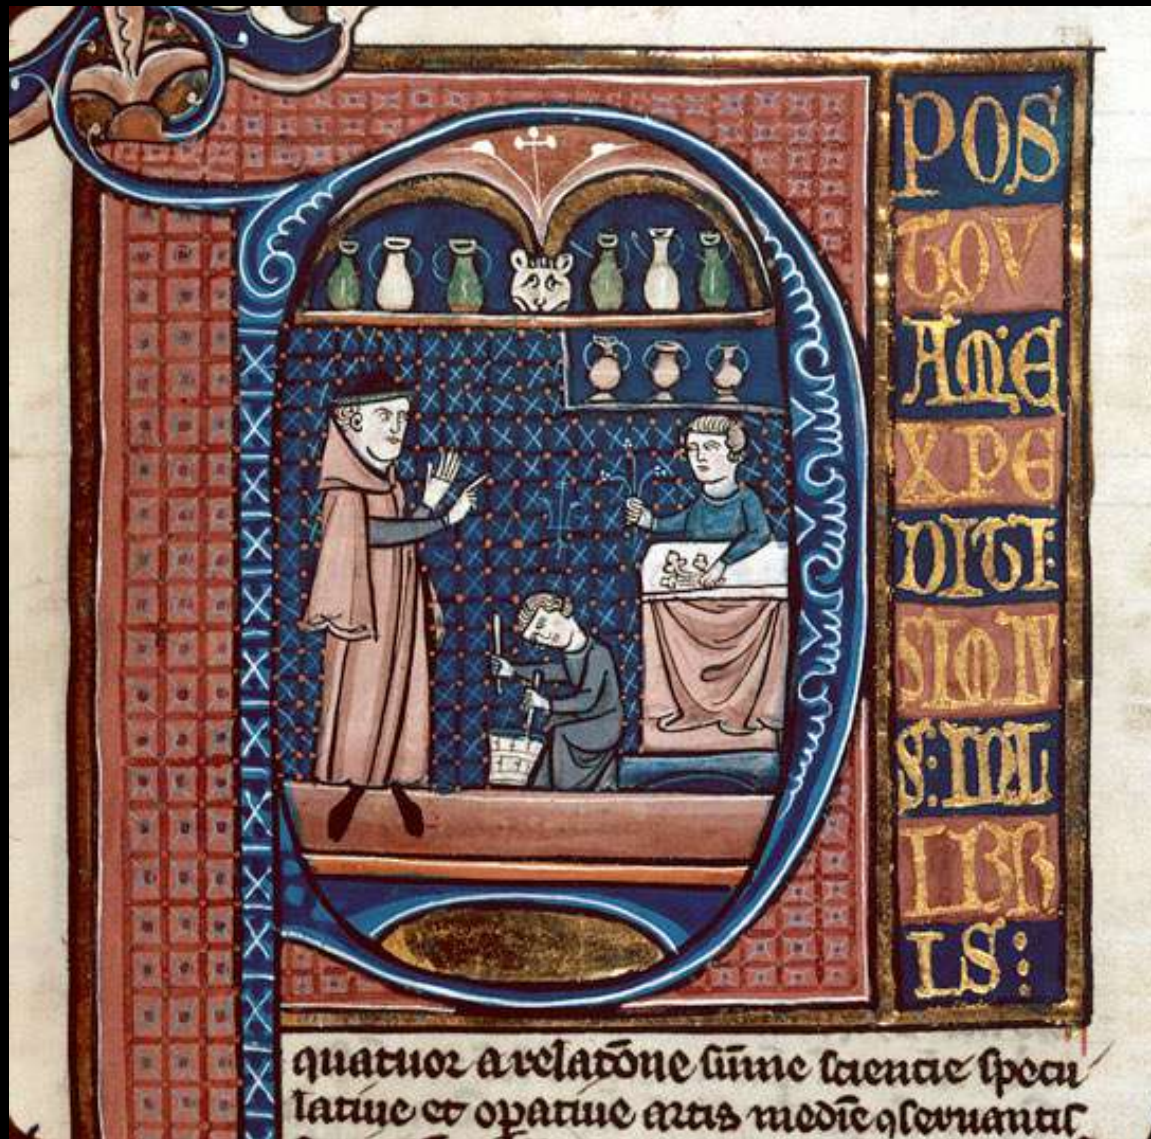 POS
TQV
AM:E
XPE
DITI:
SUMV
S:INL
IBR
IS:
quatuor a relatōne sūme scientie specu
latiue et oꝑatiue artis medīe ꝯseruantis